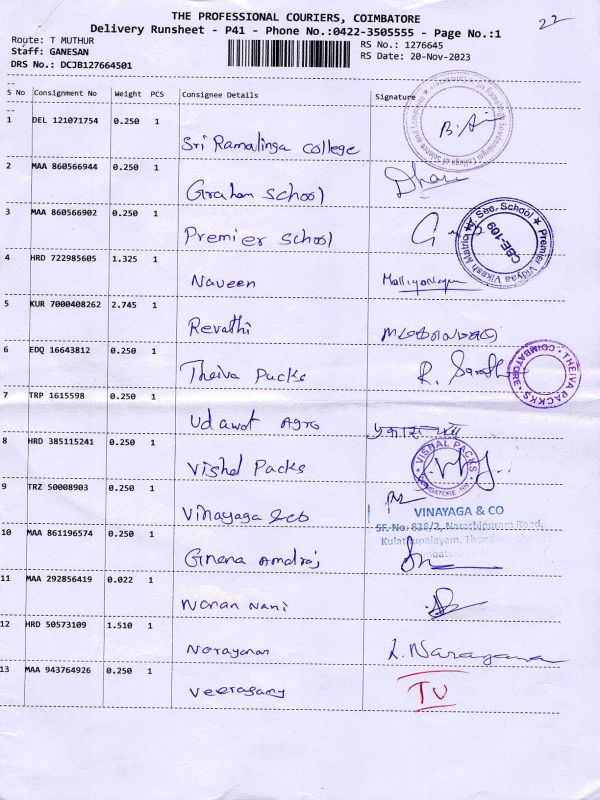 THE PROFESSIONAL COURIERS, COIMBATORE
22
Delivery Runsheet - P41 - Phone No.:0422-3505555 - Page No.:1
Route: T MUTHUR
Staff: GANESAN
DRS No.: DCJB127664501
RS No.: 1276645
RS Date: 20-Nov-2023
S No Consignment No Weight PCS Consignee Details Signature
1 DEL 121071754 0.250 1
Sri Ramalinga college
2 MAA 860566944 0.250 1
Graham School
3 MAA 860566902 0.250 1
Premier School
Premier Vidyaa Vikash Matric Hr. Sec. School
CBE-109
4 HRD 722985605 1.325 1
Naveen
5 KUR 7000408262 2.745 1
Revathi
6 EDQ 16643812 0.250 1
Theiva Packs R. Sarath
THEIVA PACKKS COIMBATORE
7 TRP 1615598 0.250 1
Udawot Agro
8 HRD 385115241 0.250 1
Vishal Packs
VISHAL PACKS
COIMBATORE
9 TRZ 50008903 0.250 1
Vinayaga &co
VINAYAGA & CO
SF. No: 828/2, Narashipuram Road,
Kulathupalayam,
10 MAA 861196574 0.250 1
Gnena Amdraj
11 MAA 292856419 0.022 1
Noran Nani
12 HRD 50573109 1.510 1
Narayanan L. Narayana
13 MAA 943764926 0.250 1
Veerasamy TU